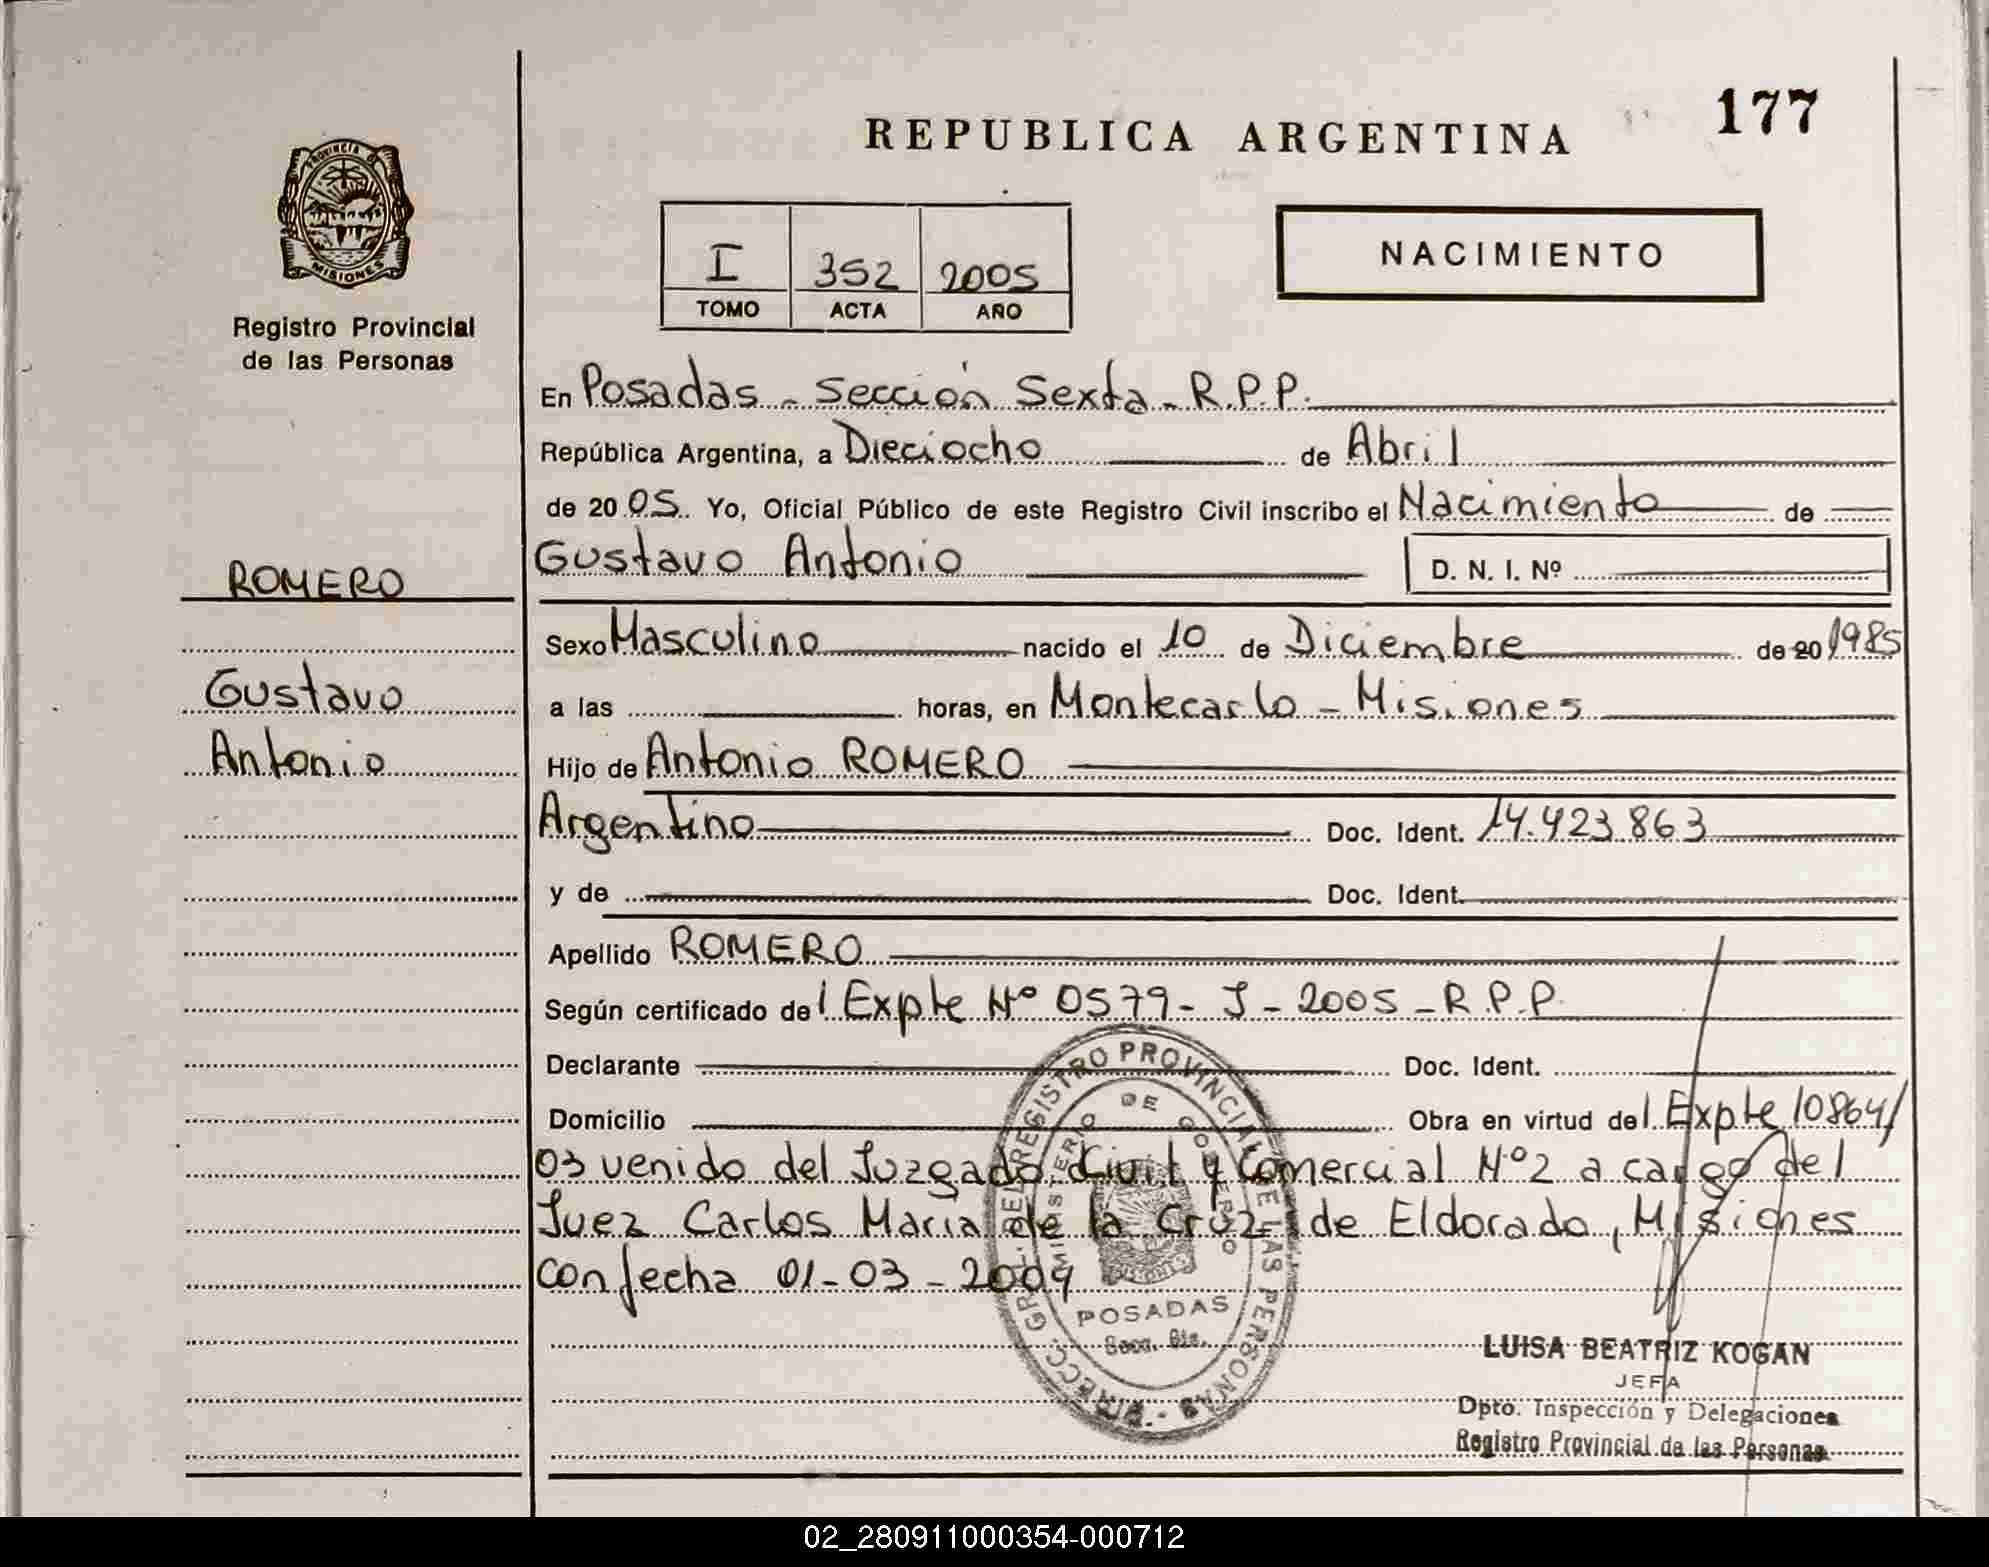 177
REPUBLICA ARGENTINA
PROVINCIA D
MISIONES
Registro Provincial
de las Personas
I 352 2005
TOMO ACTA AÑO
NACIMIENTO
En Posadas - Sección Sexta - R.P.P.
República Argentina, a Dieciocho de Abril
de 20 05 Yo, Oficial Público de este Registro Civil inscribo el Nacimiento de
ROMERO
Gustavo
Antonio
Gustavo Antonio D. N. I. Nº
Sexo Masculino nacido el 10 de Diciembre de 20 1985
a las horas, en Montecarlo - Misiones
Hijo de Antonio ROMERO
Argentino Doc. Ident. 14.423.863
y de Doc. Ident.
Apellido ROMERO
Según certificado de l Expte Nº 0579 - J - 2005 - R.P.P
Declarante Doc. Ident.
Domicilio Obra en virtud de l Expte 10864/
03 venido del Juzgado Civil y Comercial Nº2 a cargo del
Juez Carlos María de la Cruz de Eldorado, Misiones
con fecha 01-03-2004
DIRECC. GRAL. DEL REGISTRO PROVINCIAL DE LAS PERSONAS
MINISTERIO DE GOBIERNO
MISIONES
POSADAS
LUISA BEATRIZ KOGAN
JEFA
Dpto. Inspección y Delegaciones
Registro Provincial de las Personas
02_280911000354-000712